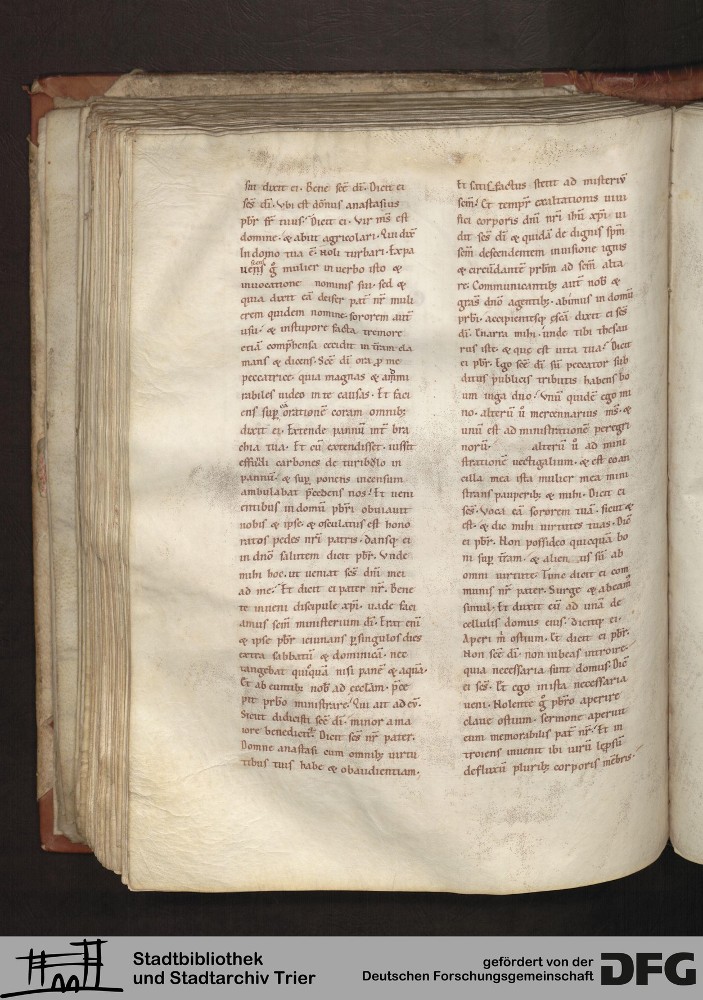 sin dixit ei. Bene scē dī. Dicit ei
scs dī. Vbi est dōnus anastasius
pbr̄ fr̄ tuus? Dicit ei. Vir m̄s est
domine. & abiit agricolari. Qui dix̄
In domo tua ē. Noli turbari. Expa
g̊ mulier in uerbo isto &
inuocatione nominis sui. sed &
quia dixit eā pat̄ nr̄ muli
erem quidem nomine. sororem aut̄
usu. & in stupore facta tremore
etiā comp̄hensa cecidit in t̄ram cla
mans & dicens. Scē dī ora ꝓ me
peccatrice. quia magnas & ammi
rabiles uideo in te causas. Et faci
ens sup eā orationē coram omnibꝫ
dixit ei. Extende pannū int̄ bra
chia tua. Et cū extendisset. iussit
effūdi carbones de turibulo in
pannū. & sup ponens incensum
ambulabat p̄cedens nos. Et ueni
entibus in domū pbr̄i obuiauit
nobis & ipse. & osculatus est hono
ratos pedes nr̄i patris. dansqꝫ ei
in dnō salutem dicit pbr̄. Vnde
mihi hoc. ut ueniat scs dnī mei
ad me? Et dicit ei pater nr̄. Bene
te inueni discipule xpī. uade faci
amus scm̄ ministerium dī. Erat enī
& ipse pbr̄ ieiunans ꝑ singulos dies
extra sabbatū & dominicā. nec
tangebat quicquā nisi panē & aquā.
Et ab euntibꝫ nob̄ ad ecclam. p̄ce
pit prb̄o ministrare. Qui ait ad eū.
Sicut didicisti scē dī. minor a ma
iore benedicit̄. Dicit scs nr̄ pater.
Domne anastasi cum omnibꝫ uirtu
tibus tuis habe & obaudientiam.
Et satis factus stetit ad misteriū
scm̄. Et tempr̄ exaltationis uiui
fici corporis dnī nr̄i ihū xpī. ui
dit scs dī & quidā de dignis spm̄
scm̄ descendentem in uisione ignis
& circūdantē prb̄m ad scm̄ alta
re. Communicantibꝫ aut̄ nob̄ &
gras̄ dnō agentibꝫ. abimus in domū
prb̄i. accipientesqꝫ escā dixit ei scs
dī. Enarra mihi. unde tibi thesau
rus iste. & que est uita tua? Dicit
ei pbr̄. Ego scē dī sū peccator sub
ditus publicis tributis habens bo
um iuga duo. Vnū quidē ego mi
no. alterū u̅ mercennarius m̄s. &
unū est ad ministrationē peregri
norū. alterū u̅ ad mini
strationē uectigalium. & est co an
cilla mea ista mulier mea mini
strans pauperibꝫ & mihi. Dicit ei
scs. Voca eā sororem tuā. sicut &
est. & dic mihi uirtutes tuas. Dix̄
ei pbr̄. Non possideo quicquā bo
ni sup t̄ram. & alienus sū ab
omni uirtute. Tunc dicit ei com
munis nr̄ pater. Surge & abeam̄
simul. Et duxit eū ad unā de
cellulis domus eius. dicitqꝫ ei.
Aperi m̄ ostium. Et dicit ei pbr̄.
Non scē dī. non iubeas introire.
quia necessaria sunt domus. Dix̄
ei scs. Et ego in ista necessaria
ueni. Nolente g̊ pbr̄o aperire
claue ostium. sermone aperuit
eum memorabilis pat̄ nr̄. Et in
troiens inuenit ibi uirū lep̄sū
defluxū pluribꝫ corporis mēbris.
Stadtbibliothek
und Stadtarchiv Trier
gefördert von der
Deutschen Forschungsgemeinschaft
DFG